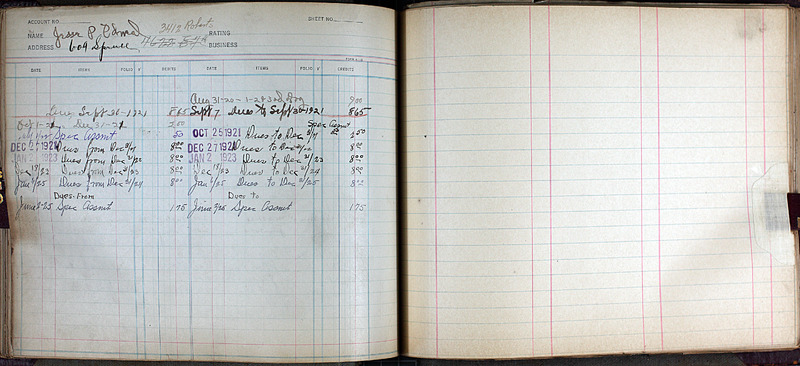 ACCOUNT NO. SHEET NO.
3412 Roberts
NAME Jesse P. RATING
ADDRESS 604 Spruce BUSINESS
DATE ITEMS FOLIO √ DEBITS DATE ITEMS FOLIO √ CREDITS
Aug 31-20- 1- 900
Dues Sept 30-1921 865 Sept 7 Dues to Sept 30-1921 865
Oct 1-21 Dec 31-21 200 Spec Assmt
Spec Assmt 50 OCT 25 1921 Dues to Dec 31/21 50 250
DEC 27 1921 Dues from Dec 800 DEC 27 1921 Dues to Dec 800
JAN 2 1923 Dues from Dec 31/22 800 JAN 2 1923 Dues to Dec 31/23 800
Dec 18/23 Dues from Dec 31/23 800 Dec 18/23 Dues to Dec 31/24 800
Jan /25 Dues from Dec 31/24 800 Jan /25 Dues to Dec 31/25 800
Dues-From Dues to
June 25 Spec Assmt 175 June 9/25 Spec Assmt 175